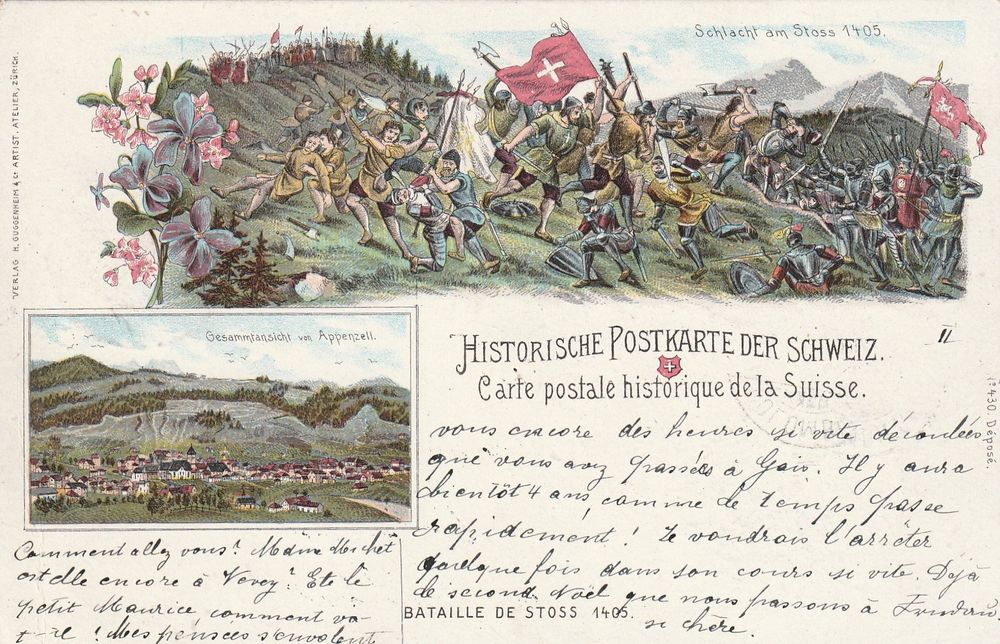 Schlacht am Stoss 1405.
VERLAG H. GUGGENHEIM & Co ARTIST. ATELIER, ZÜRICH.
Gesammtansicht von Appenzell.
HISTORISCHE POSTKARTE DER SCHWEIZ.
Carte postale historique de la Suisse.
II
No 430. Déposé.
vous encore des heures si vite découlées
que vous avez passées à Gais. Il y aura
bientôt 4 ans, comme de temps passe
rapidement! Je voudrais l'arrêter
quelque fois dans son cours si vite. Déjà
le second Noël que nous passons à
si chère.
Comment allez vous? Mdme Michet
est elle encore à Vevey? Et le
petit Maurice comment va-
t-il! Mes pensées s'envolent
BATAILLE DE STOSS 1405.